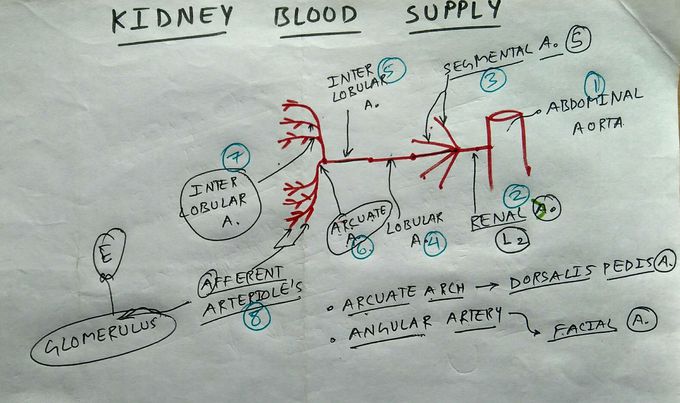 KIDNEY BLOOD SUPPLY
INTER 5
LOBULAR
A.
SEGMENTAL A. 5
3
1
ABDOMINAL
AORTA
7
INTER
LOBULAR
A.
ARCUATE
A.
6
LOBULAR
A. 4
2
RENAL A.
L2
E
AFFERENT
ARTERIOLE'S
8
GLOMERULUS
• ARCUATE ARCH → DORSALIS PEDIS A.
• ANGULAR ARTERY → FACIAL A.